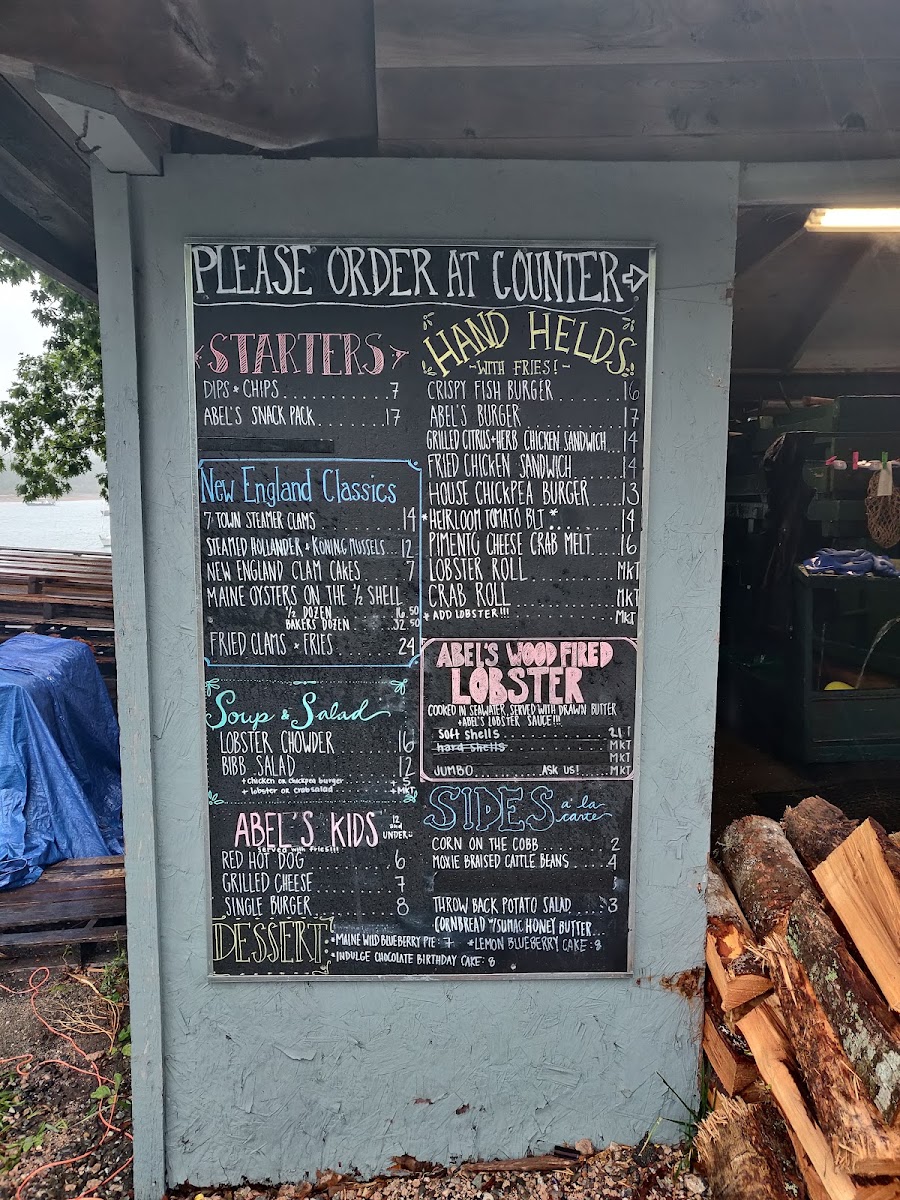 PLEASE ORDER AT COUNTER
STARTERS
DIPS & CHIPS 7
ABEL'S SNACK PACK 17
New England Classics
7 TOWN STEAMER CLAMS 14
STEAMED HOLLANDER & KONING MUSSELS 12
NEW ENGLAND CLAM CAKES 7
MAINE OYSTERS ON THE 1/2 SHELL
1/2 DOZEN 16.50
BAKERS DOZEN 32.50
FRIED CLAMS & FRIES 24
Soup & Salad
LOBSTER CHOWDER 16
BIBB SALAD 12
+ chicken or chickpea burger + 5
+ lobster or crab salad + MKT
ABEL'S KIDS 12 and UNDER
served with fries!!!
RED HOT DOG 6
GRILLED CHEESE 7
SINGLE BURGER 8
HAND HELDS
~WITH FRIES!~
CRISPY FISH BURGER 16
ABEL'S BURGER 17
GRILLED CITRUS+HERB CHICKEN SANDWICH 14
FRIED CHICKEN SANDWICH 14
HOUSE CHICKPEA BURGER 13
*HEIRLOOM TOMATO BLT* 14
PIMENTO CHEESE CRAB MELT 16
LOBSTER ROLL MKT
CRAB ROLL MKT
+ ADD LOBSTER!!! MKT
ABEL'S WOOD FIRED
LOBSTER
COOKED IN SEAWATER, SERVED WITH DRAWN BUTTER
+ABEL'S LOBSTER SAUCE!!!
Soft Shells 21
hard shells MKT
MKT
JUMBO ASK US! MKT
SIDES à la carte
CORN ON THE COBB 2
MOXIE BRAISED CATTLE BEANS 4
THROW BACK POTATO SALAD 3
CORNBREAD W/SUMAC HONEY BUTTER
DESSERT: *MAINE WILD BLUEBERRY PIE: 7 *LEMON BLUEBERRY CAKE: 8
*INDULGE CHOCOLATE BIRTHDAY CAKE: 8